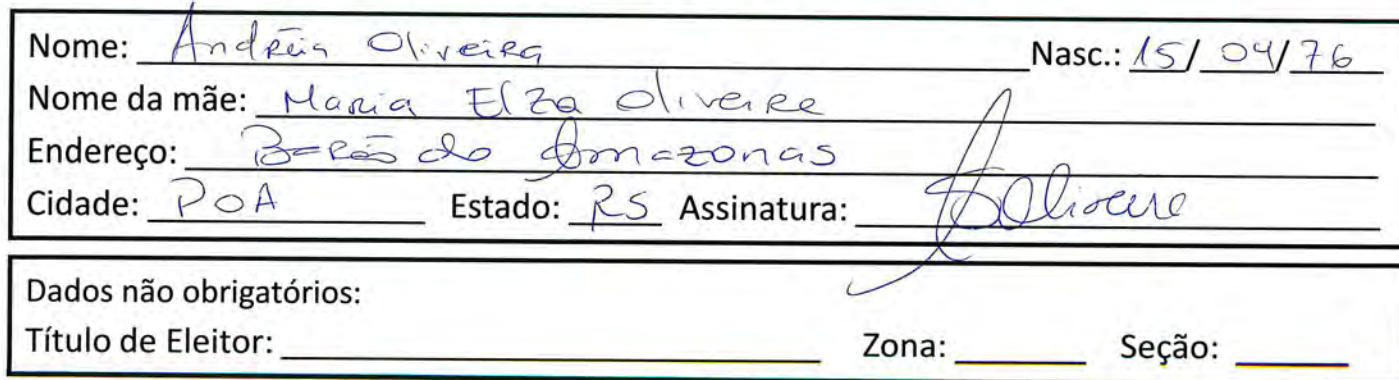 Nome: Andréia Oliveira Nasc.: 15/04/76
Nome da mãe: Maria Elza Oliveira
Endereço: Barão do Amazonas
Cidade: POA Estado: RS Assinatura: AOliveira
Dados não obrigatórios:
Título de Eleitor: Zona: Seção: